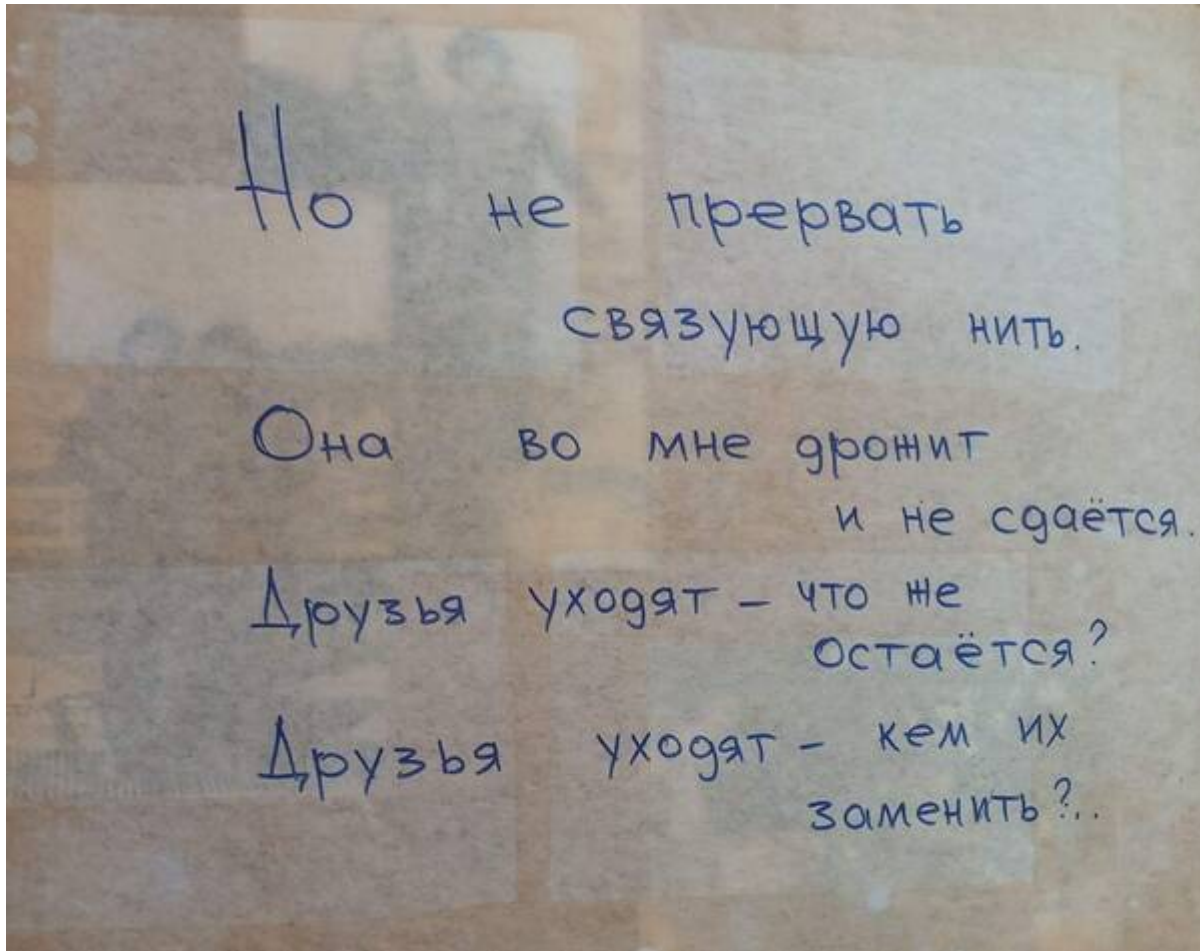 Но не прервать
связующую нить.
Она во мне дрожит
и не сдаётся.
Друзья уходят – что же
остаётся?
Друзья уходят – кем их
заменить?..